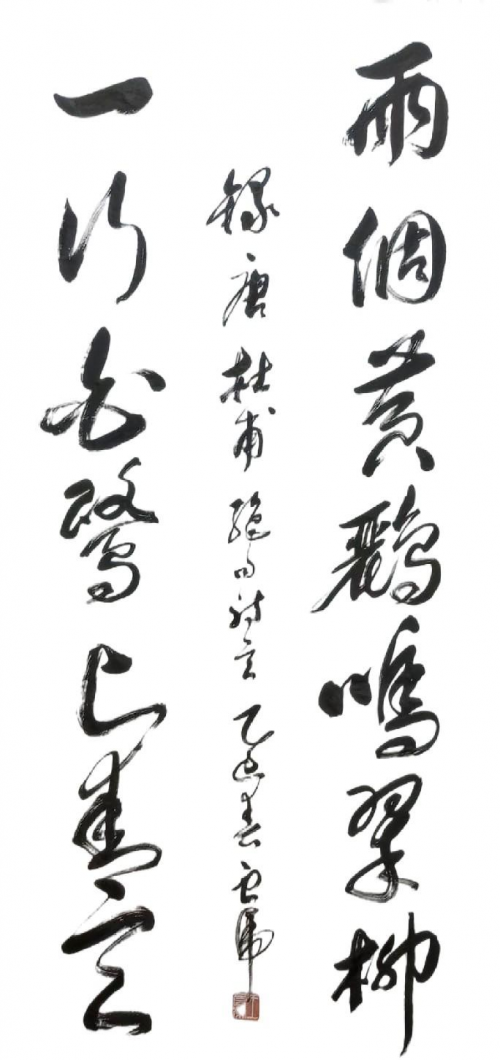 兩個黃鸝鳴翠柳
錄唐杜甫絕句詩 乙巳春
一行白鷺上青天